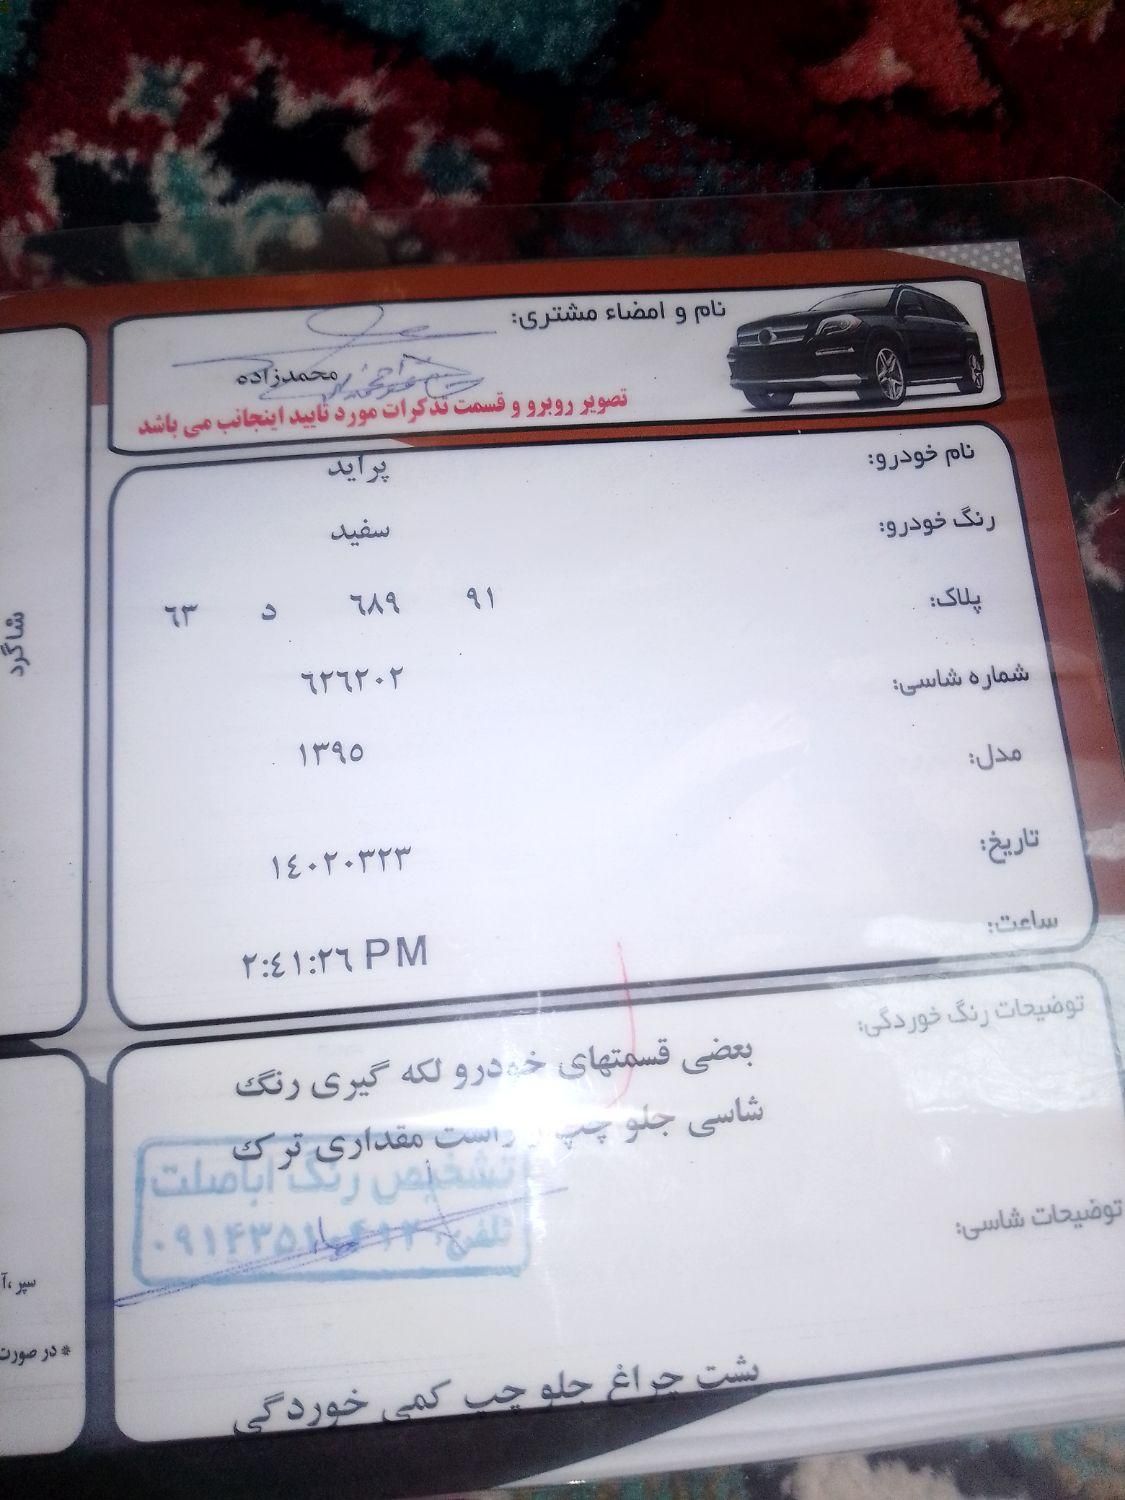 نام و امضاء مشتری:
محمدزاده
تصویر روبرو و قسمت تذکرات مورد تایید اینجانب می باشد
نام خودرو: پراید
رنگ خودرو: سفید
پلاک: ۹۱ ۶۸۹ د ۶۳
شماره شاسی: ۶۲۶۲۰۲
مدل: ۱۳۹۵
تاریخ: ۱۴۰۲۰۳۲۳
ساعت: ۲:۴۱:۲۶ PM
توضیحات رنگ خوردگی:
بعضی قسمتهای خودرو لکه گیری رنگ
شاسی جلو چپ و راست مقداری ترک
تشخیص رنگ اباصلت
تلفن:
توضیحات شاسی:
پشت چراغ جلو چپ کمی خوردگی
شاگرد
سپر،
* در صورت